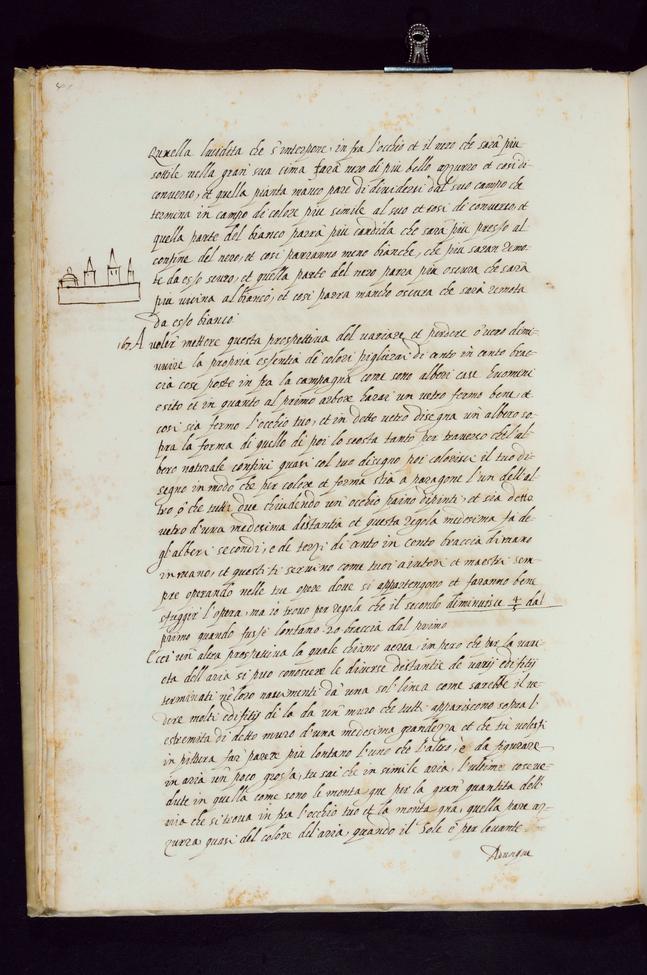 Quella lucidita che s'interpone, in fra l'occhio et il nero che sarà piu
sottile nella gran sua cima farà nero di piu bello azzurro et cosi di
converso, et quella pianta manco pare di dividersi dal suo campo che
termina in campo de colore piu simile al suo et cosi de converso, et
quella parte del bianco parrà piu candida che sarà piu presso al
confine del nero, et cosi parranno meno bianche, che piu saran remo-
te da esso scuro, et quella parte del nero parra piu oscura che sarà
piu vicina al bianco, et cosi parra mancho oscura che sarà remota
da esso bianco.
167. A voler mettere questa prospettiva del variare et perdere ò vero dimi-
nuire la propria essentia de colori piglierai di cento in cento brac-
cia cose poste in fra la campagna come sono alberi case huomini
e sito et in quanto al primo arbore harai un vetro fermo bene, et
cosi sia fermo l'occhio tuo, et in detto vetro disegna un albero so-
pra la forma di quello di poi lo scosta tanto per traverso che l'al-
bero naturale confini quasi col tuo disegno poi colorisci il tuo di-
segno in modo che per colore et forma stia a paragone l'un dell'al-
tro ò che tutti due chiudendo un' occhio paino dipinti, et sia detto
vetro d'una medesima distantia et questa regola medesima fà de
gl'alberi secondi, e de terzi di cento in cento braccia di mano
in mano, et questi ti servino come tuoi aiutori et maestri sem-
pre operando nelle tue opere dove si appartengono et faranno bene
sfuggir l'opera, ma io trovo per regola che il secondo diminuisce 4/5 dal
primo quando fusse lontano 20 braccia dal primo
Ecci un' altra prospettiva la quale chiamo aerea, in pero che per la varie-
ta dell'aria si puo conoscere le diverse distantie de varij edifitij
terminati ne loro nascimenti da una sol' linea come sarebbe il ve-
dere molti edifitij di la da un' muro che tutti appariscono sopra l'
estremita di detto muro d'una medesima grandezza et che tu volessi
in pittura far' parere piu lontano l'uno che l'altro, è da figurare
in aria un' poco grossa, tu sai che in simile aria, l'ultime cose ve-
dute in quella come sono le montagne per la gran quantita dell'
aria che si trova in fra l'occhio tuo et la montagna, quella pare az-
zurra quasi del colore del'aria, quando il sole è per levante
Adunque